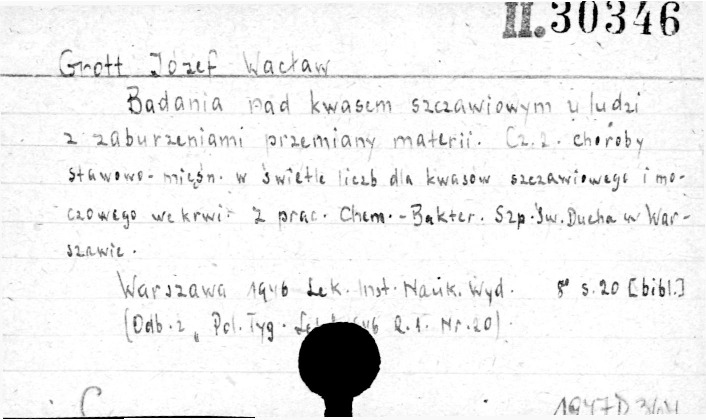 II.30346
Grott Józef Wacław
Badania nad kwasem szczawiowym u ludzi
z zaburzeniami przemiany materii. Cz. 2. choroby
stawowo-mięśn. w świetle liczb dla kwasów szczawiowego i mo-
czowego we krwi. Z prac. Chem.-Bakter. Szp. Św. Ducha w War-
szawie.
Warszawa 1946 Lek. Inst. Nauk. Wyd. 8° s. 20 [bibl.]
(Odb. z "Pol. Tyg. R. 1. Nr. 20).
C
1947 D